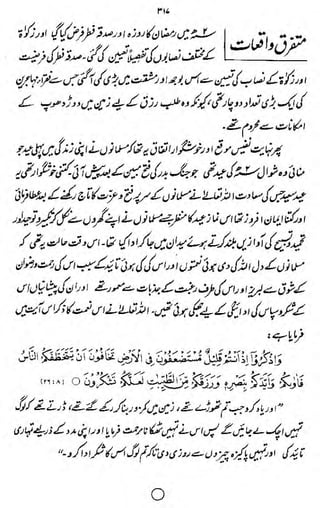 ۳۱۷
متفرق واقعات
۲ھ میں رمضان کا روزہ اور صدقہ فطر فرض کیا گیا اور زکوٰۃ
کے مختلف نصابوں کی تفصیلاً تعیین کی گئی۔ صدقہ فطر کی فرضیت
اور زکوٰۃ کے نصاب کی تعیین سے اس بوجھ اور مشقت میں بڑی کمی آگئی جس سے فقراء مہاجرین
کی ایک بڑی تعداد دوچار تھی، کیونکہ وہ طلب رزق کے لیے زمین میں دوڑ دھوپ کے
امکانات سے محروم تھے۔
پھر نہایت نفیس موقع اور خوشگوار اتفاق یہ تھا کہ مسلمانوں نے اپنی زندگی میں پہلی عید جو
منائی وہ شوال ۲ھ کی عید تھی جو جنگ بدر کی فتح مبین کے بعد پیش آئی۔ کتنی خوشگوار تھی یہ
عید سعید جس کی سعادت اللہ تعالیٰ نے مسلمانوں کے سر پر فتح و عزت کا تاج رکھنے کے بعد عطا فرمائی
اور کتنا ایمان افروز تھا اس نماز عید کا منظر جسے مسلمانوں نے اپنے گھروں سے نکل کر تکبیر و توحید اور
تحمید و تسبیح کی آوازیں بلند کرتے ہوئے میدان میں جا کر ادا کیا تھا۔ اس وقت حالت یہ تھی کہ
مسلمانوں کے دل اللہ کی دی ہوئی نعمتوں اور اس کی کی ہوئی تائید کے سبب اس کی رحمت و رضوان
کے شوق سے لبریز اور اس کی طرف رغبت کے جذبات سے معمور تھے اور ان کی پیشانیاں اس
کے شکر و سپاس کی ادائیگی کے لیے جھکی ہوئی تھیں۔ اللہ تعالیٰ نے اس نعمت کا ذکر اس آیت میں
فرمایا ہے:
وَاذْكُرُوا إِذْ أَنْتُمْ قَلِيلٌ مُسْتَضْعَفُونَ فِي الْأَرْضِ تَخَافُونَ أَنْ يَتَخَطَّفَكُمُ النَّاسُ
فَآوَاكُمْ وَأَيَّدَكُمْ بِنَصْرِهِ وَرَزَقَكُمْ مِنَ الطَّيِّبَاتِ لَعَلَّكُمْ تَشْكُرُونَ ○ (۲۶:۸)
"اور یاد کرو جب تم تھوڑے تھے، زمین میں کمزور بنا کر رکھے گئے تھے، ڈرتے تھے کہ لوگ
تمہیں اچک لے جائیں گے پس اس نے تمہیں ٹھکانا مرحمت فرمایا اور اپنی مدد کے ذریعے تمہاری
تائید کی اور تمہیں پاکیزہ چیزوں سے روزی دی تاکہ تم لوگ اس کا شکر ادا کرو۔"